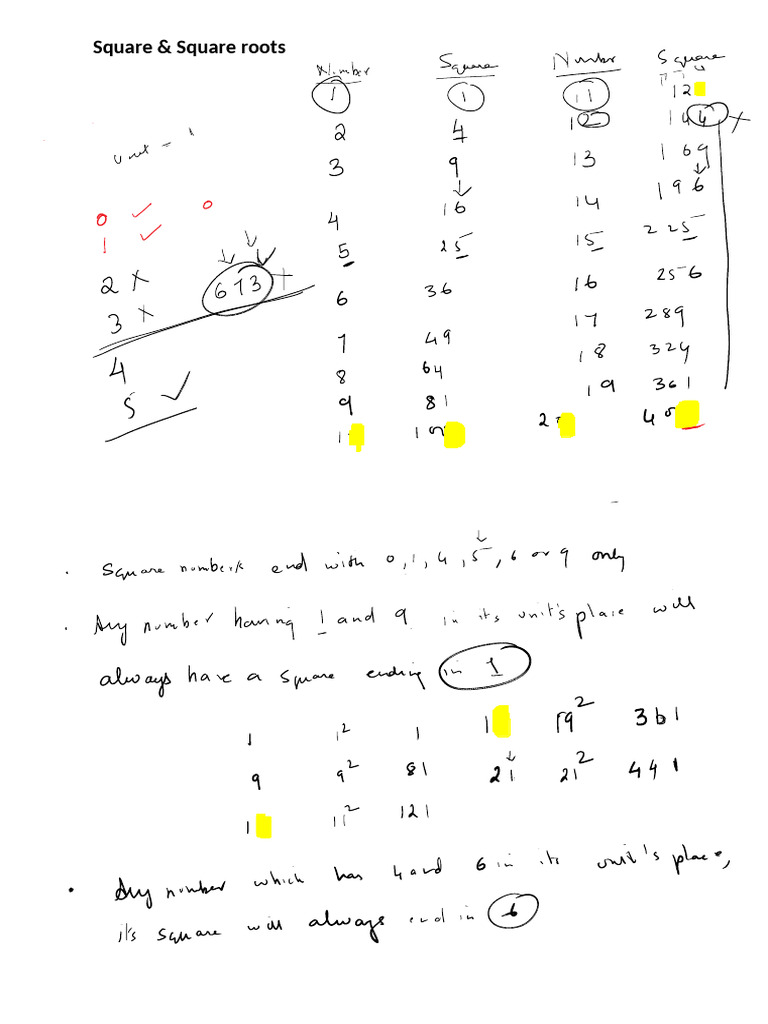 Square & Square roots
Number Square Number Square
1 1 11 12
2 4 12 144 x
3 9 13 169
4 16 14 196
5 25 15 225
6 36 16 256
7 49 17 289
8 64 18 324
9 81 19 361
1 10 2 40
unit = 1
0 ✓ 0
1 ✓
2 x 673 x
3 x
4
5 ✓
. Square numbers end with 0, 1, 4, 5, 6 or 9 only
. Any number having 1 and 9 in its unit's place will
always have a square ending in 1
1 1² 1 1 19² 361
9 9² 81 21 21² 441
1 11² 121
• Any number which has 4 and 6 in its unit's place,
its square will always end in 6